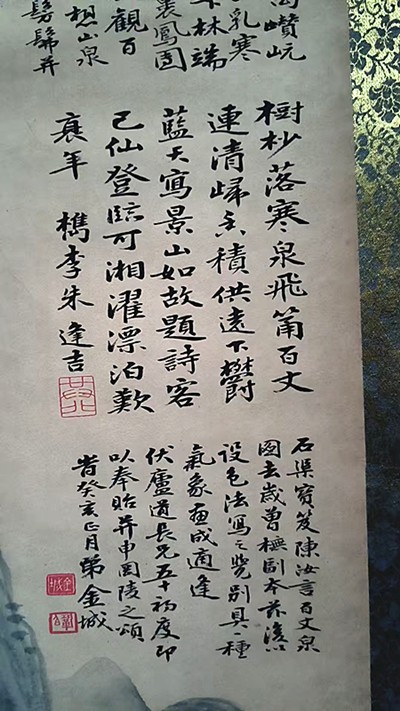 巑岏
乳寒
林端
裏鳳團
觀百
想山泉
髣髴并
樹杪落寒泉飛筩百丈
連清歸香積供遠下欝
藍天寫景山如故題詩客
已仙登臨可湘濯漂泊歎
衰年 檇李朱逢吉
石渠寶笈陳汝言百丈泉
圖去歲曾橅副本茲復以
設色法寫之覺別具一種
氣象畫成適逢
伏廬道長兄五十初度即
以奉貽并申岡陵之頌
旹癸亥正月弟金城